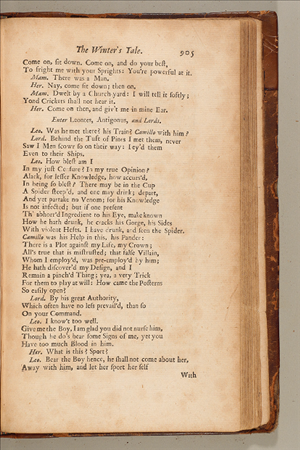 The Winter's Tale. 905
Come on, sit down. Come on, and do your best,
To fright me with your Sprights: You're powerful at it.
Mam. There was a Man.
Her. Nay, come sit down; then on.
Mam. Dwelt by a Church-yard: I will tell it softly;
Yond Crickets shall not hear it.
Her. Come on then, and give't me in mine Ear.
Enter Leontes, Antigonus, and Lords.
Leo. Was he met there? his Train? Camillo with him?
Lord. Behind the Tuft of Pines I met them, never
Saw I Men scowr so on their way: I ey'd them
Even to their Ships.
Leo. How blest am I
In my just Censure? In my true Opinion?
Alack, for lesser Knowledge, how accurs'd,
In being so blest? There may be in the Cup
A Spider steep'd, and one may drink; depart,
And yet partake no Venom; for his Knowledge
Is not infected; but if one present
Th' abhorr'd Ingredient to his Eye, make known
How he hath drunk, he cracks his Gorge, his Sides
With violent Hefts. I have drunk, and seen the Spider.
Camillo was his Help in this, his Pander:
There is a Plot against my Life, my Crown;
All's true that is mistrusted; that false Villain,
Whom I employ'd, was pre-employ'd by him;
He hath discover'd my Design, and I
Remain a pinch'd Thing; yea, a very Trick
For them to play at will: How came the Posterns
So easily open?
Lord. By his great Authority,
Which often have no less prevail'd, than so
On your Command.
Leo. I know't too well.
Give me the Boy, I am glad you did not nurse him,
Though he do's bear some Signs of me, yet you
Have too much Blood in him.
Her. What is this? Sport?
Leo. Bear the Boy hence, he shall not come about her,
Away with him, and let her sport her self
With